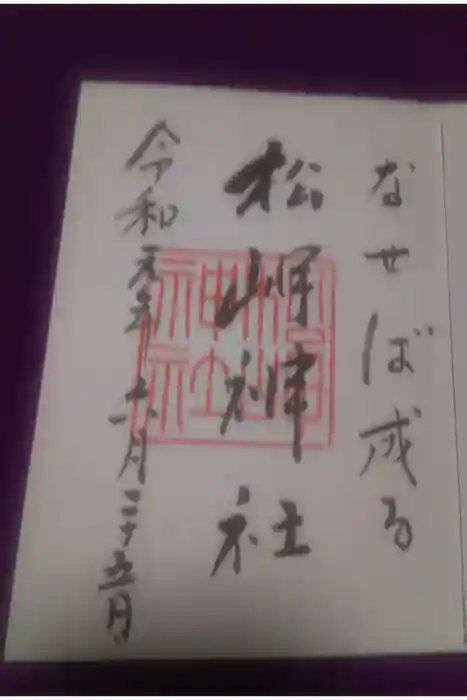 なせば成る
松岬神社
令和元年十一月二十五日